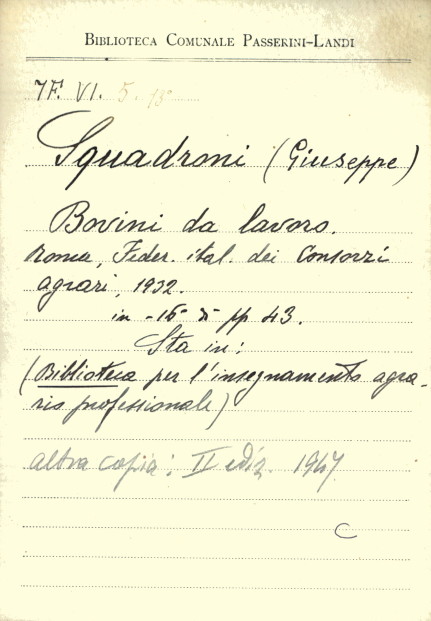 BIBLIOTECA COMUNALE PASSERINI-LANDI
7F. VI. 5. 13°
Squadroni (Giuseppe)
Bovini da lavoro.
Roma, Feder. ital. dei Consorzi
agrari, 1932.
in -16° di pp 43.
Sta in:
(Biblioteca per l'insegnamento agra-
rio professionale)
altra copia: II ediz. 1947.
C